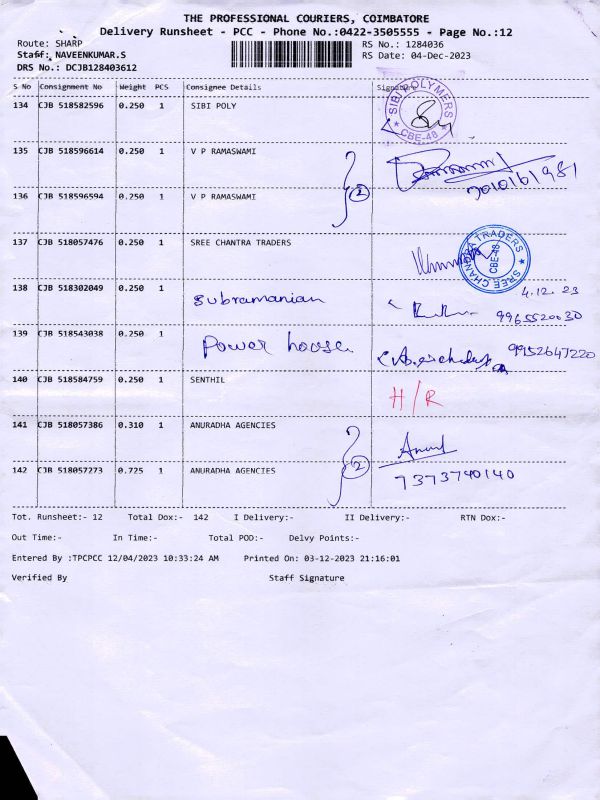 THE PROFESSIONAL COURIERS, COIMBATORE
Delivery Runsheet - PCC - Phone No.:0422-3505555 - Page No.:12
Route: SHARP RS No.: 1284036
Staff: NAVEENKUMAR.S RS Date: 04-Dec-2023
DRS No.: DCJB128403612
S No Consignment No Weight PCS Consignee Details Signature
134 CJB 518582596 0.250 1 SIBI POLY
SIBI POLYMERS
CBE-48
135 CJB 518596614 0.250 1 V P RAMASWAMI
2
136 CJB 518596594 0.250 1 V P RAMASWAMI
137 CJB 518057476 0.250 1 SREE CHANTRA TRADERS
SREE CHANDRA TRADERS
CBE-48
138 CJB 518302049 0.250 1 Subramanian 4.12.23
9965520030
139 CJB 518543038 0.250 1 Power house 9952647220
140 CJB 518584759 0.250 1 SENTHIL H/R
141 CJB 518057386 0.310 1 ANURADHA AGENCIES
2
142 CJB 518057273 0.725 1 ANURADHA AGENCIES 7373740140
Tot. Runsheet:- 12 Total Dox:- 142 I Delivery:- II Delivery:- RTN Dox:-
Out Time:- In Time:- Total POD:- Delvy Points:-
Entered By :TPCPCC 12/04/2023 10:33:24 AM Printed On: 03-12-2023 21:16:01
Verified By Staff Signature